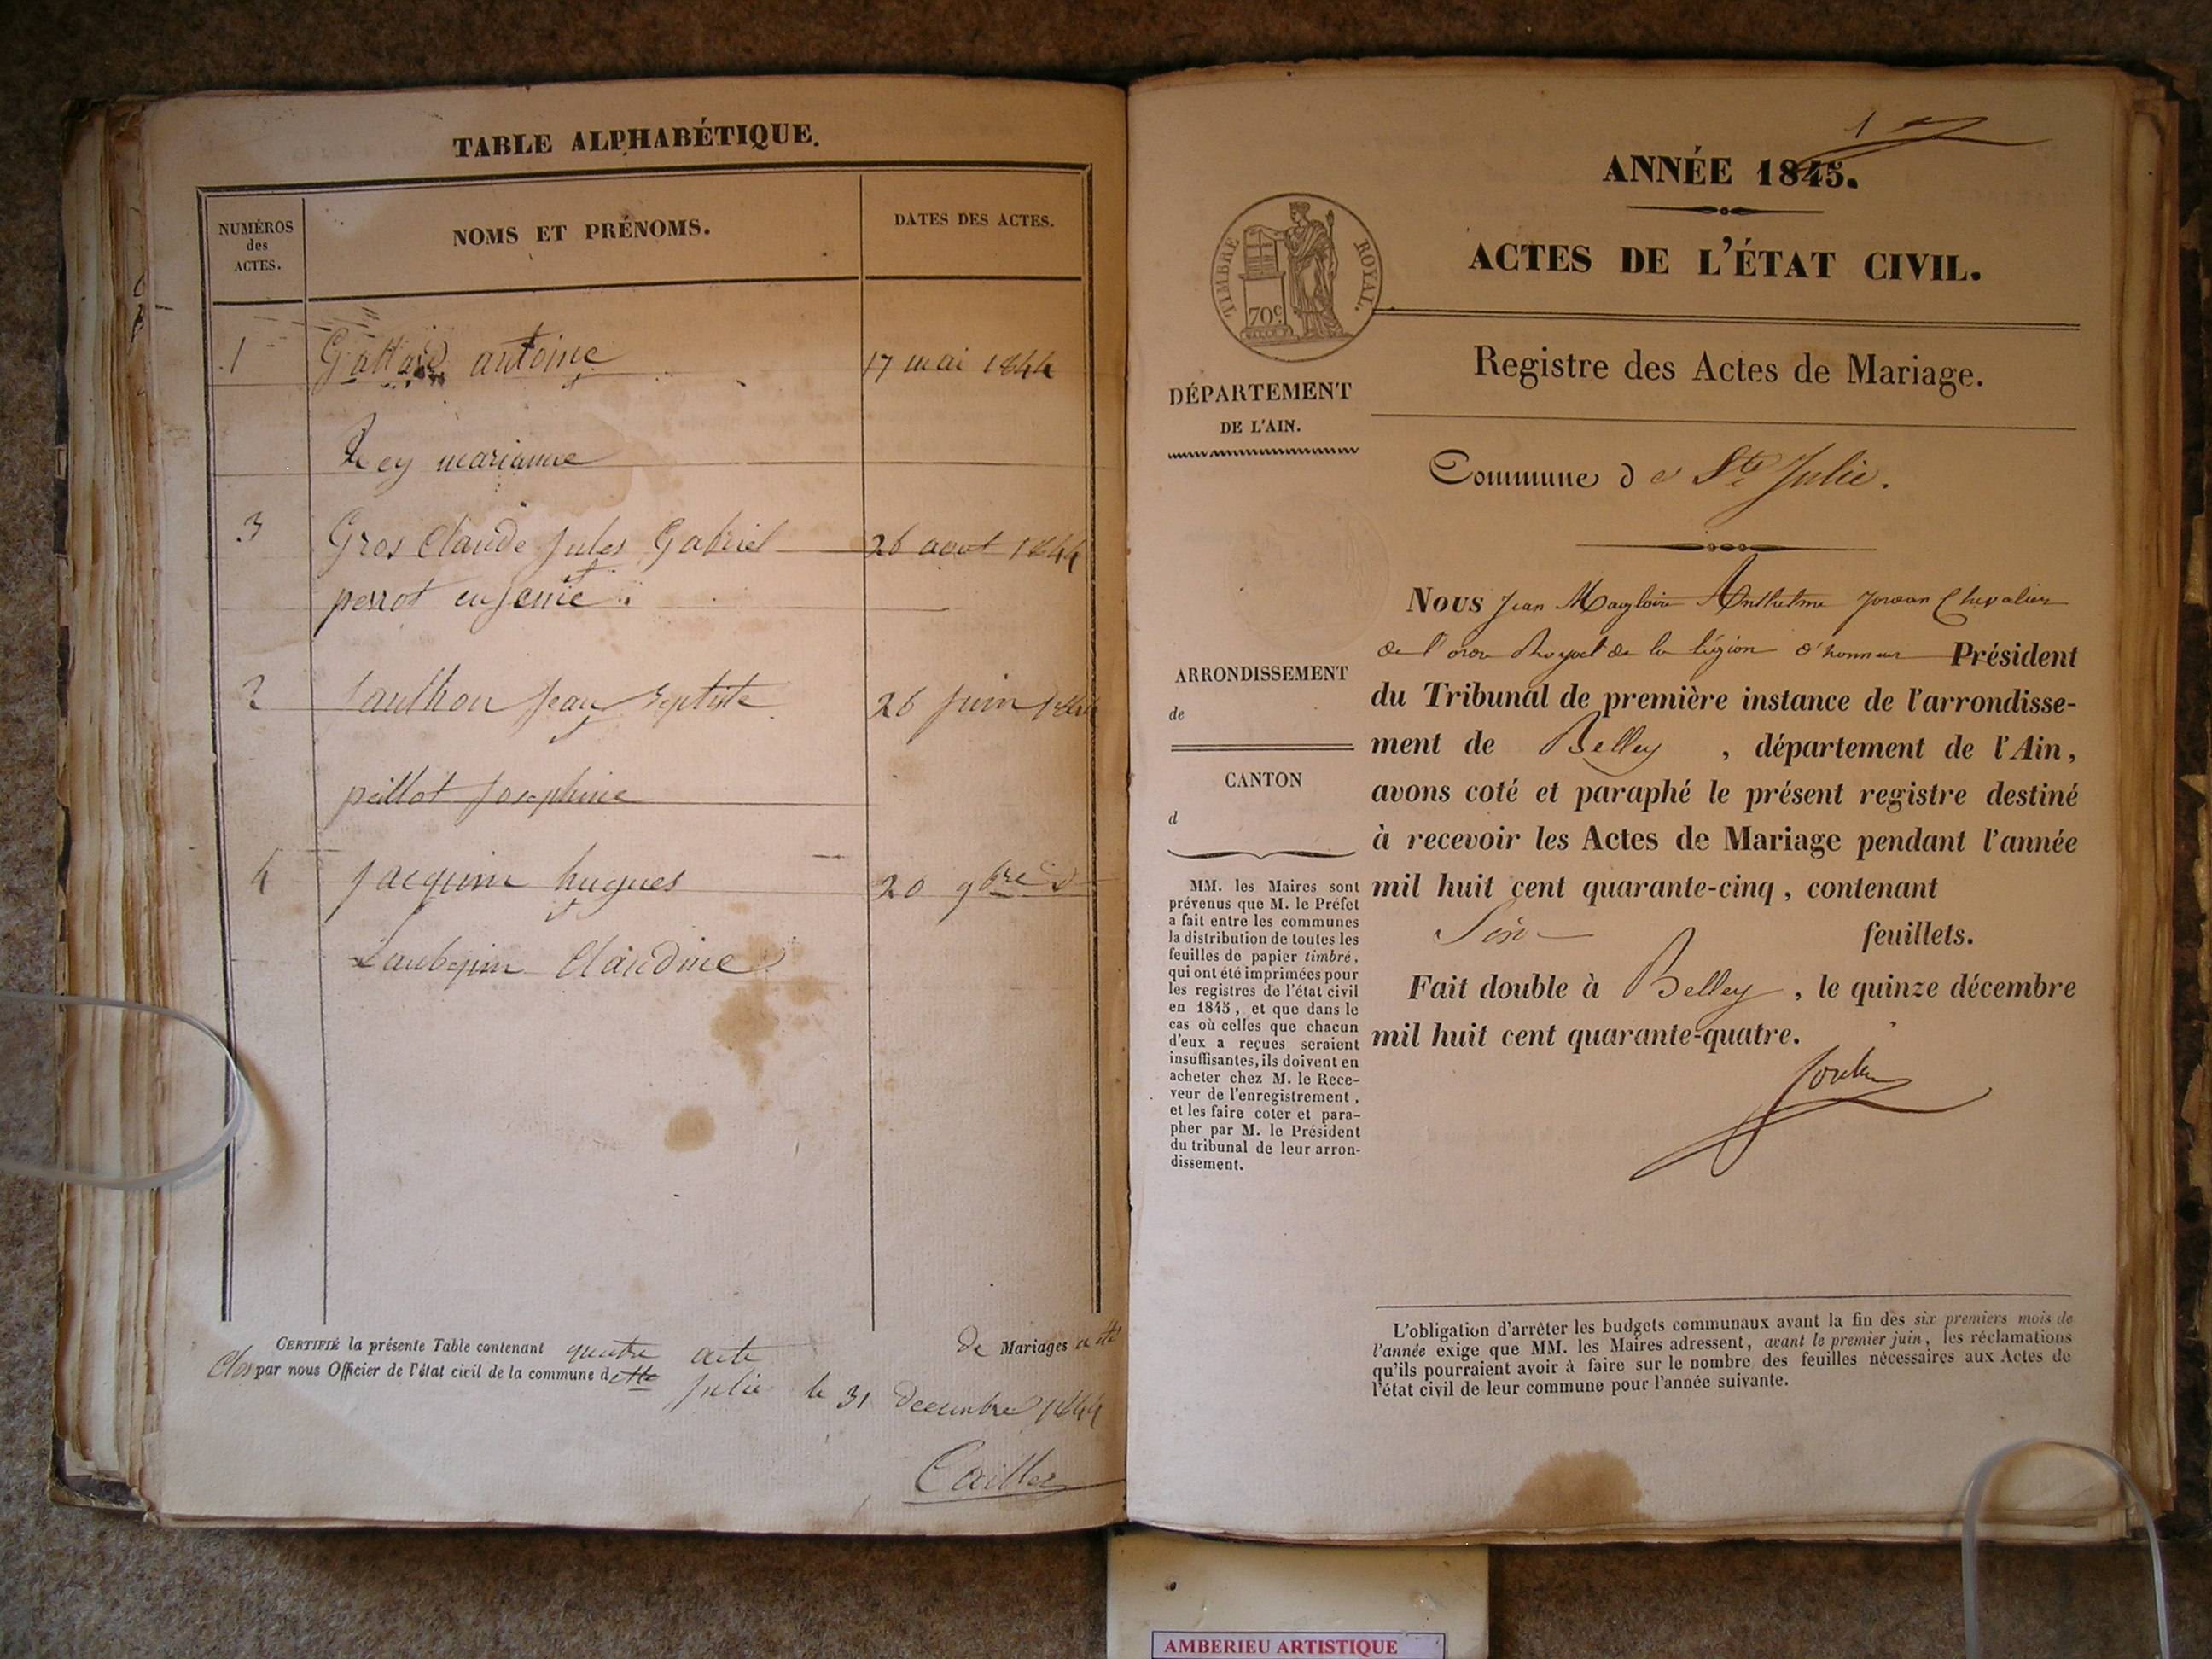 TABLE ALPHABÉTIQUE.
NUMÉROS
des
ACTES.
NOMS ET PRÉNOMS.
DATES DES ACTES.
1 antoine 17 mai 1844
Rey marianne
3 Gros Claude Jules Gabriel 26 aout 1844
perrot eugenie
2 Jean Baptiste 26 Juin 1844
peillot Josephine
4 Jacquin hugues 20 9bre d
Laubepin Claudine
CERTIFIÉ la présente Table contenant quatre acte de Mariages
Clos par nous Officier de l'état civil de la commune de Ste
Julie le 31 decembre 1844
1er
ANNÉE 1845.
ACTES DE L'ÉTAT CIVIL.
TIMBRE ROYAL.
70c
Registre des Actes de Mariage.
DÉPARTEMENT
DE L'AIN.
Commune de Ste Julie.
Nous Jean Magloire Anthelme Chevalier
de l'ordre Royal de la légion d'honneur Président
du Tribunal de première instance de l'arrondisse-
ment de Belley, département de l'Ain,
avons coté et paraphé le présent registre destiné
à recevoir les Actes de Mariage pendant l'année
mil huit cent quarante-cinq, contenant
feuillets.
Fait double à Belley, le quinze décembre
mil huit cent quarante-quatre.
ARRONDISSEMENT
de
CANTON
d
MM. les Maires sont
prévenus que M. le Préfet
a fait entre les communes
la distribution de toutes les
feuilles de papier timbré,
qui ont été imprimées pour
les registres de l'état civil
en 1845, et que dans le
cas où celles que chacun
d'eux a reçues seraient
insuffisantes, ils doivent en
acheter chez M. le Rece-
veur de l'enregistrement,
et les faire coter et para-
pher par M. le Président
du tribunal de leur arron-
dissement.
L'obligation d'arrêter les budgets communaux avant la fin des six premiers mois de
l'année exige que MM. les Maires adressent, avant le premier juin, les réclamations
qu'ils pourraient avoir à faire sur le nombre des feuilles nécessaires aux Actes de
l'état civil de leur commune pour l'année suivante.
AMBERIEU ARTISTIQUE